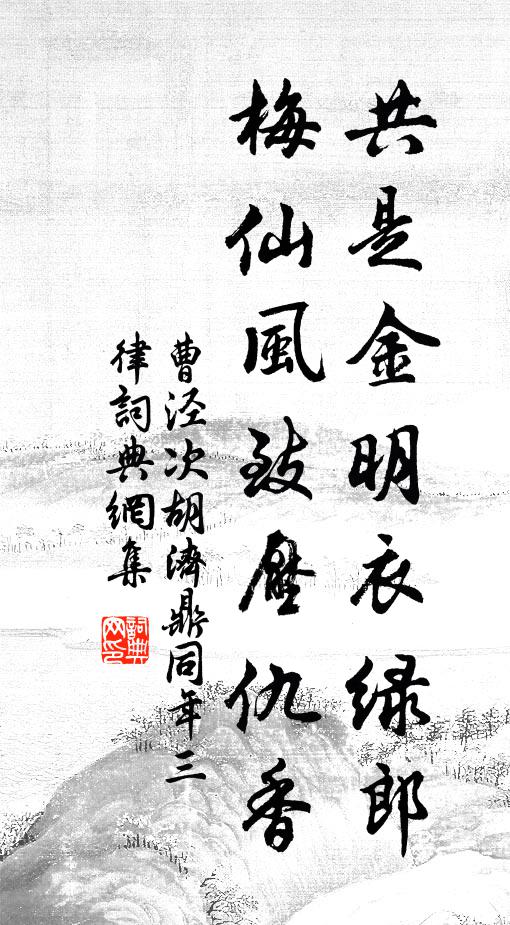 共是金明衣绿郎
梅仙風致壓仇香
曹泾次胡濟鼎同年三
律詞典網集
詞典
网印